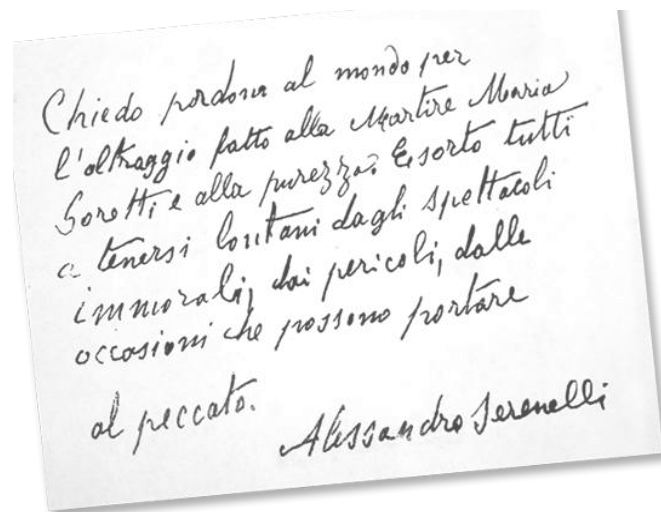 Chiedo perdono al mondo per
l'oltraggio fatto alla Martire Maria
Goretti e alla purezza. Esorto tutti
a tenersi lontani dagli spettacoli
immorali, dai pericoli, dalle
occasioni che possono portare
al peccato.
Alessandro Serenelli